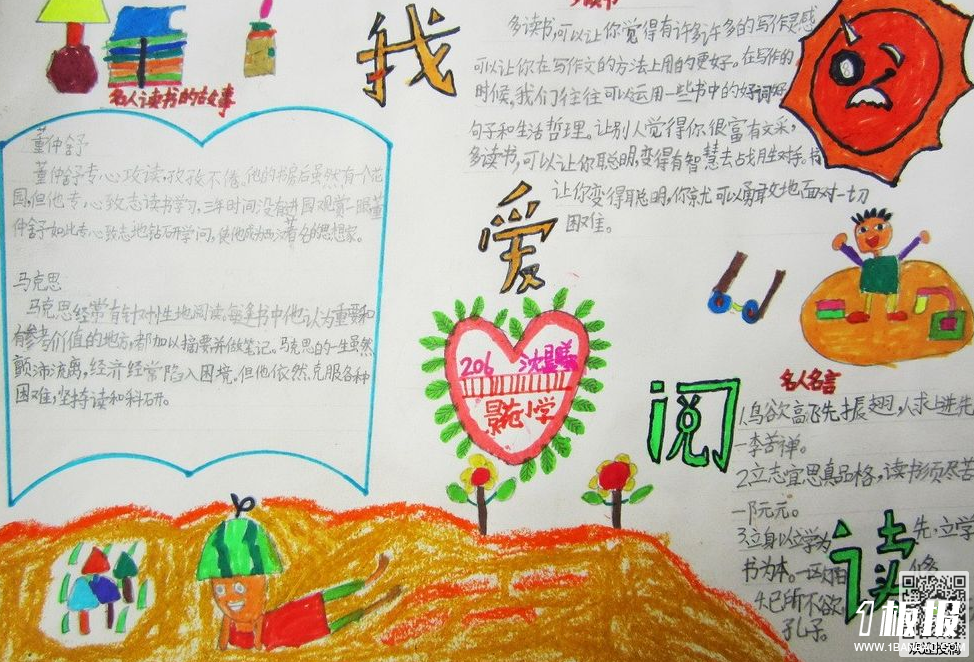 我
爱
阅
读
名人读书的故事
董仲舒
董仲舒专心攻读,孜孜不倦。他的书房后虽然有一个花
园,但他专心致志读书学习,三年时间没有进园观赏一眼,董
仲舒如此专心致志地钻研学问,使他成为西汉著名的思想家。
马克思
马克思经常有针对性地阅读,每逢书中他认为重要和
有参考价值的地方,都加以摘要并做笔记。马克思的一生虽然
颠沛流离,经济经常陷入困境。但他依然克服各种
困难,坚持读和科研。
多读书,可以让你觉得有许多许多的写作灵感
可以让你在写作文的方法上用的更好。在写作的
时候,我们往往可以运用一些书中的好词好
句子和生活哲理。让别人觉得你很富有文采,
多读书,可以让你聪明,变得有智慧去战胜对手。书
让你变得聪明,你就可以勇敢地面对一切
困难。
206
景苑小学
名人名言
1、鸟欲高飞先振翅,人求上进先
—李苦禅。
2立志宜思真品格,读书须尽苦
—阮元。
3立身以立学为先,立学
书为本。—欧阳修
4、己所不欲
孔子。
1板报
WWW.1BANBAO.COM
欢迎投稿